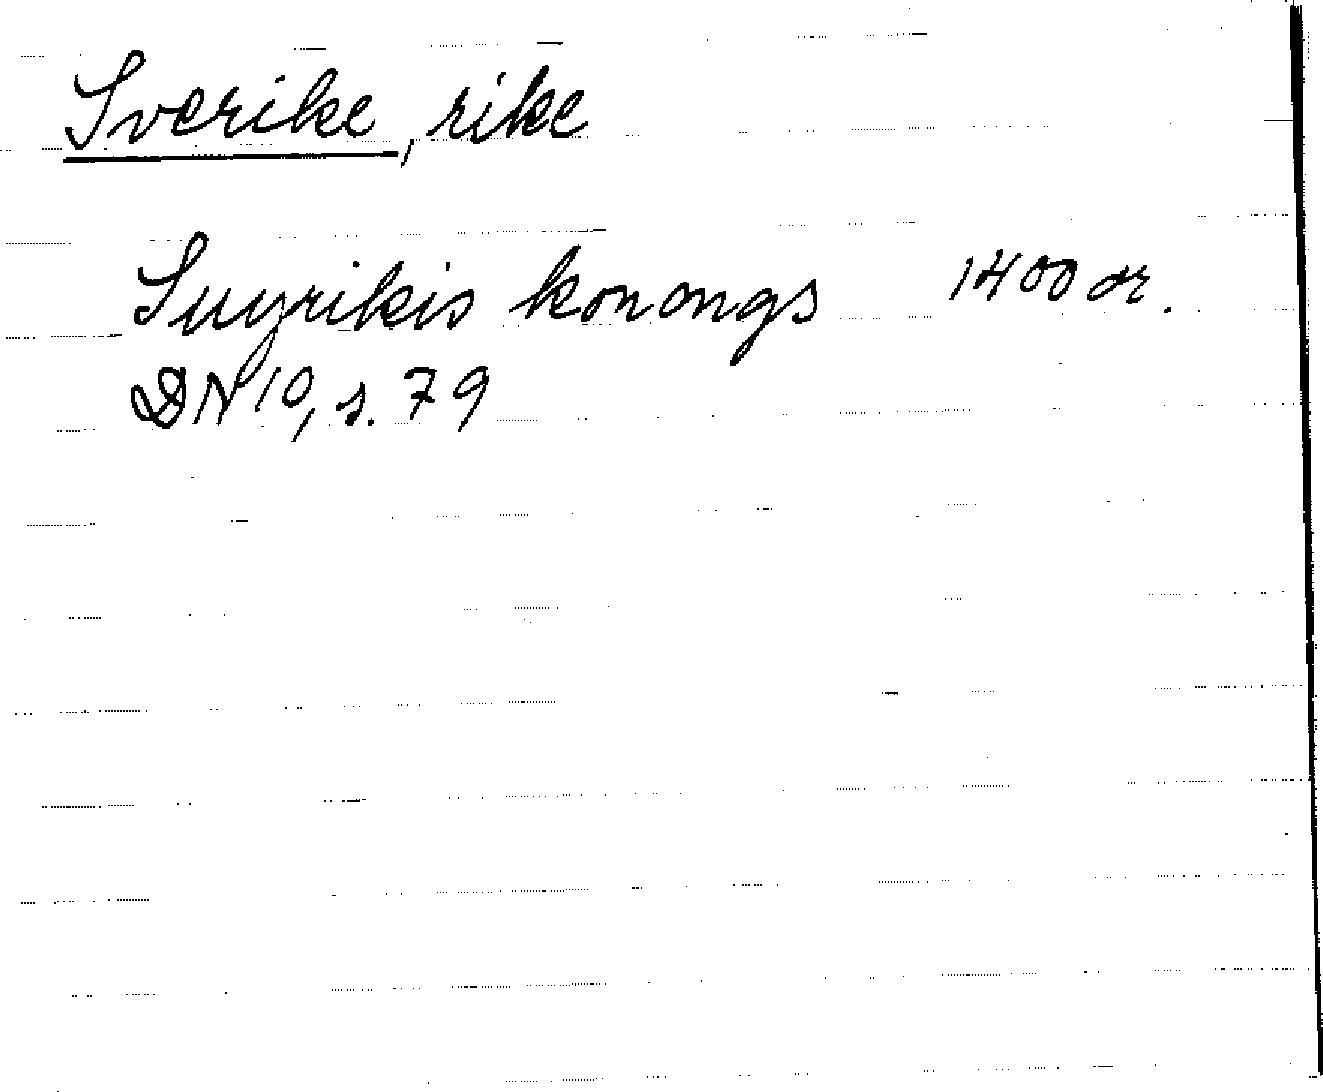 Sverike, rike
Suyrikis konongs 1400 or.
DN 10, s. 79